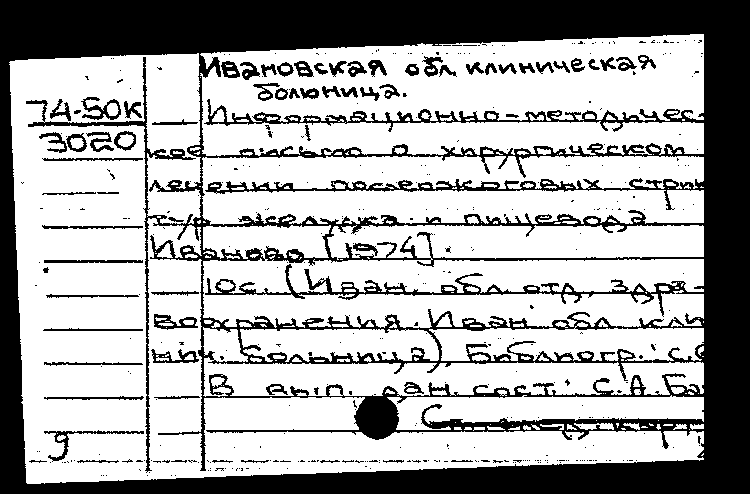 Ивановская обл. клиническая
больница.
74-50к
3020
Информационно-методичес-
кое письмо о хирургическом
лечении послеожоговых стрик
тур желудка и пищевода.
Иваново, [1974].
10с. (Иван. обл. отд. здра-
воохранения. Иван. обл. кли
нич. больница). Библиогр.: с.
В вып. дан. сост.: С.А. Ба
См. след. карт.
9